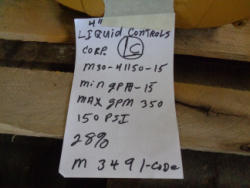 4"
LIQUID CONTROLS
CORP. LC
M30-41150-15
min gpm-15
MAX gpm 350
150 PSI
28%
M 3491-CODE